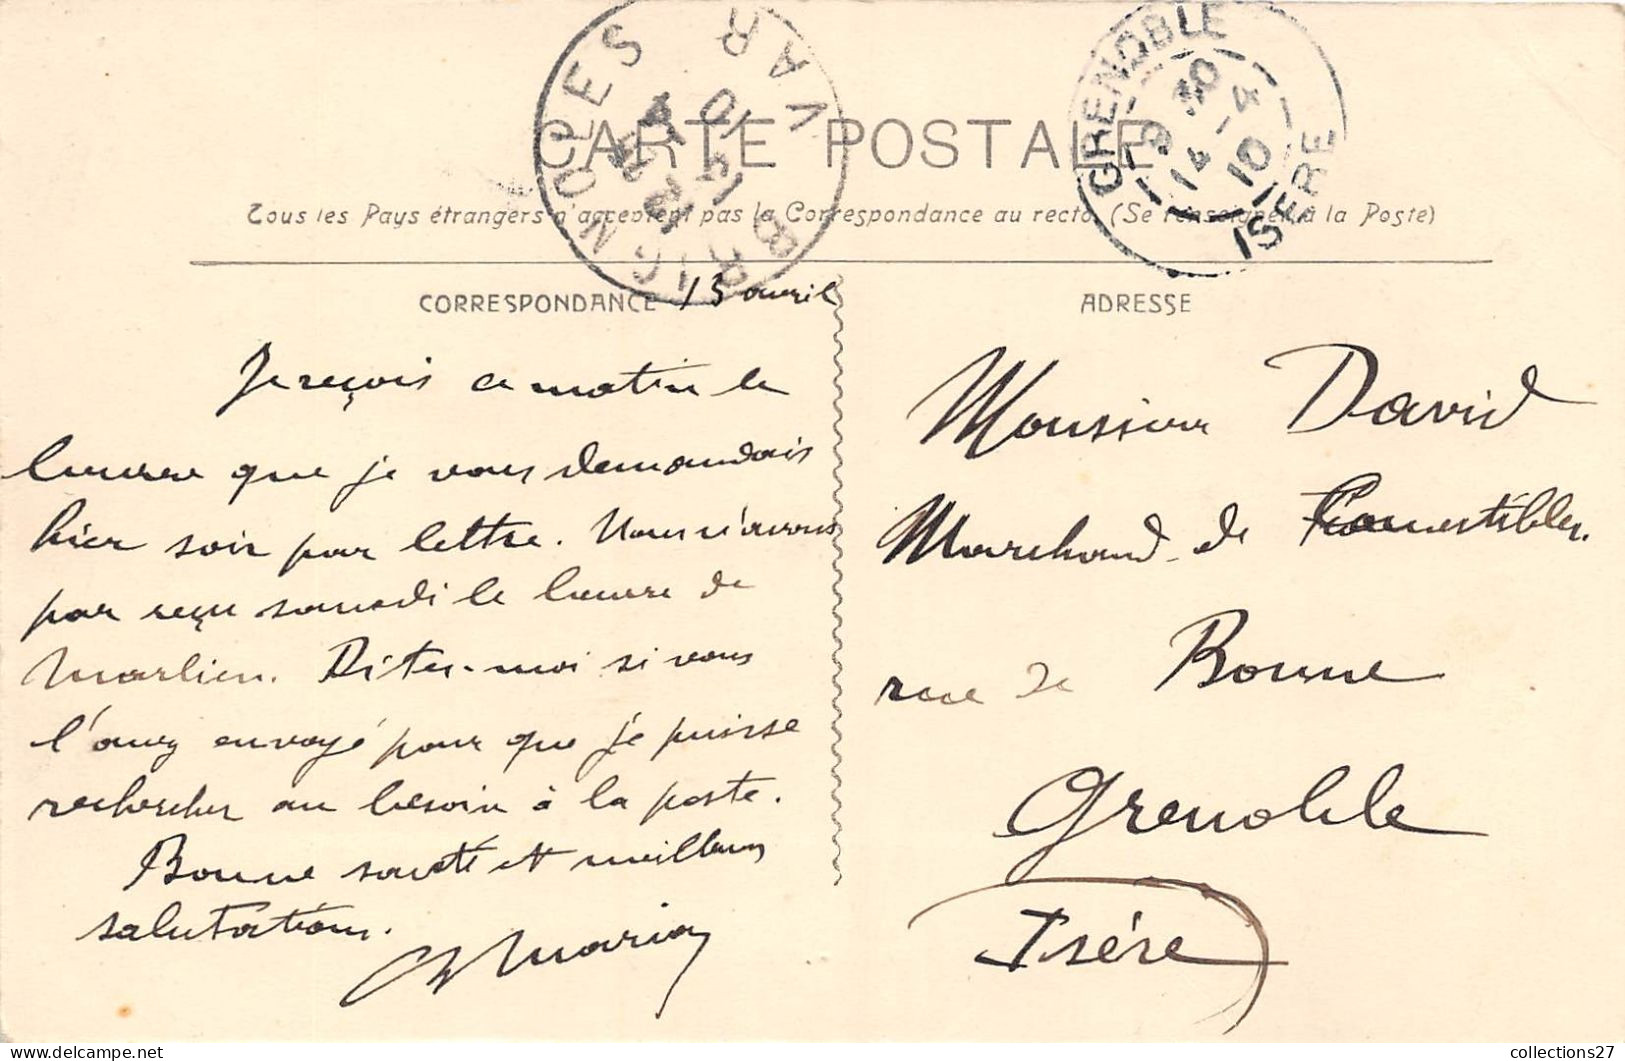 CARTE POSTALE
Tous les Pays étrangers n'acceptent pas la Correspondance au recto. (Se renseigner à la Poste)
BRIGNOLES VAR
GRENOBLE
ISERE
CORRESPONDANCE
13 avril
Je reçois ce matin le
beurre que je vous demandais
hier soir par lettre. Nous n'avons
pas reçu samedi le beurre de
Marlien. Dites-moi si vous
l'avez envoyé pour que je puisse
rechercher au besoin à la poste.
Bonne santé et meilleures
salutations.
ADRESSE
Monsieur David
Marchand de Comestibles.
rue de Bonne
Grenoble
Isère
collections27